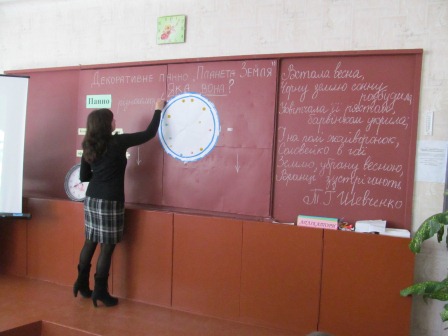 Декоративне панно „Планета Земля”
Яка вона?
Панно
Встала весна,
Чорну землю сонну
розбудила,
Уквітчала її рястом,
барвінком укрила;
І на полі жайворонок,
Соловейко в гаї
Землю, убрану весною,
Вранці зустрічають
Т. Г. Шевченко